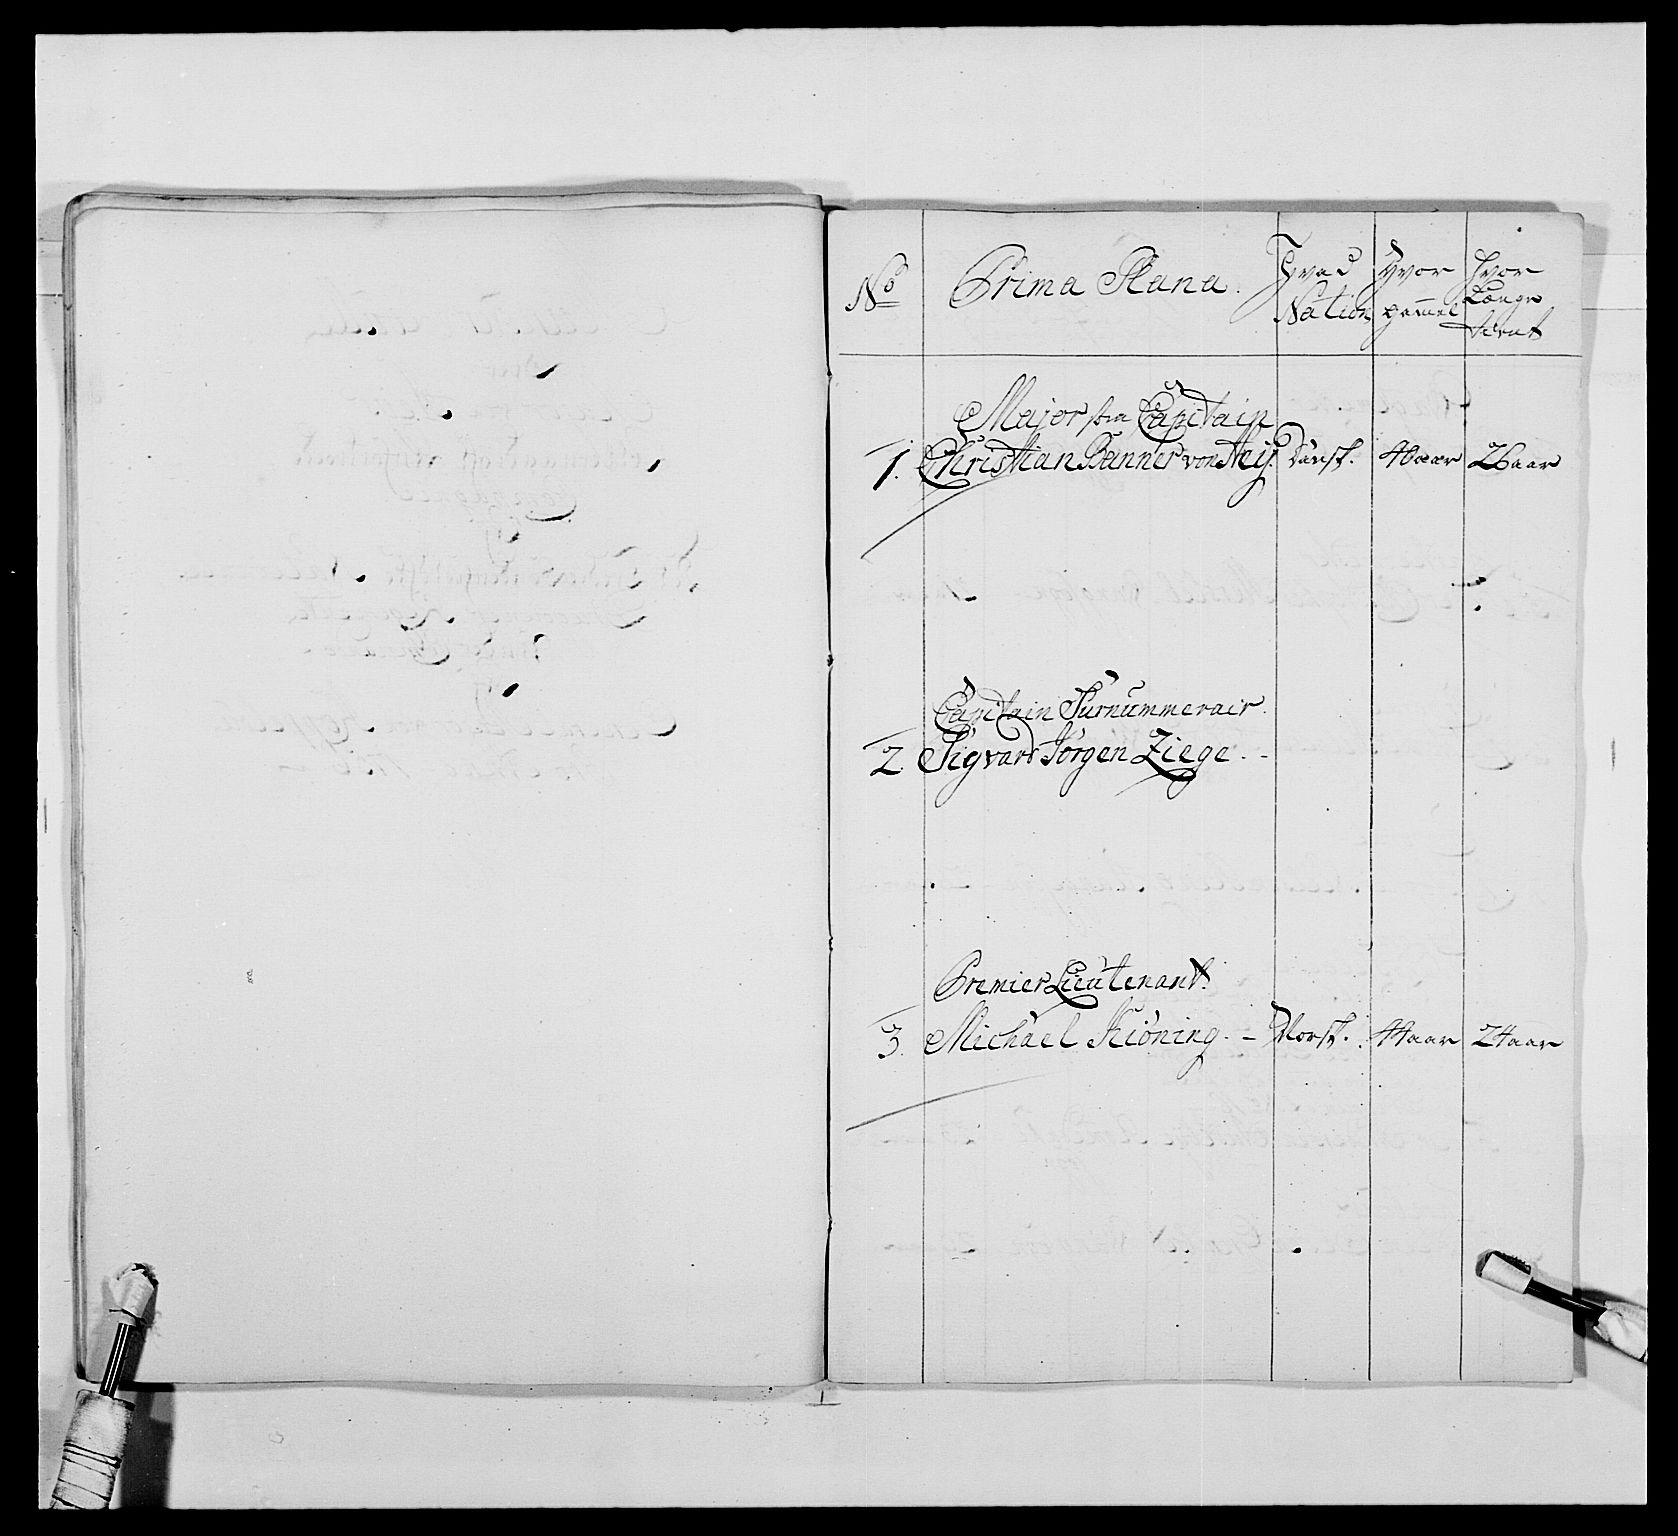 No
Prima Plana.
Hvad Nation
Hvor gammel
Hvor Længe tient
Major som Capitain
1. Christian Banner von Neij. Dansk. 40 aar 26 aar
Capitain Surnummerair.
2. Sigvard Jörgen Ziege. -
Premier Lieutenant.
3. Michael Kiöning. - Norsk. 44 aar 24 aar